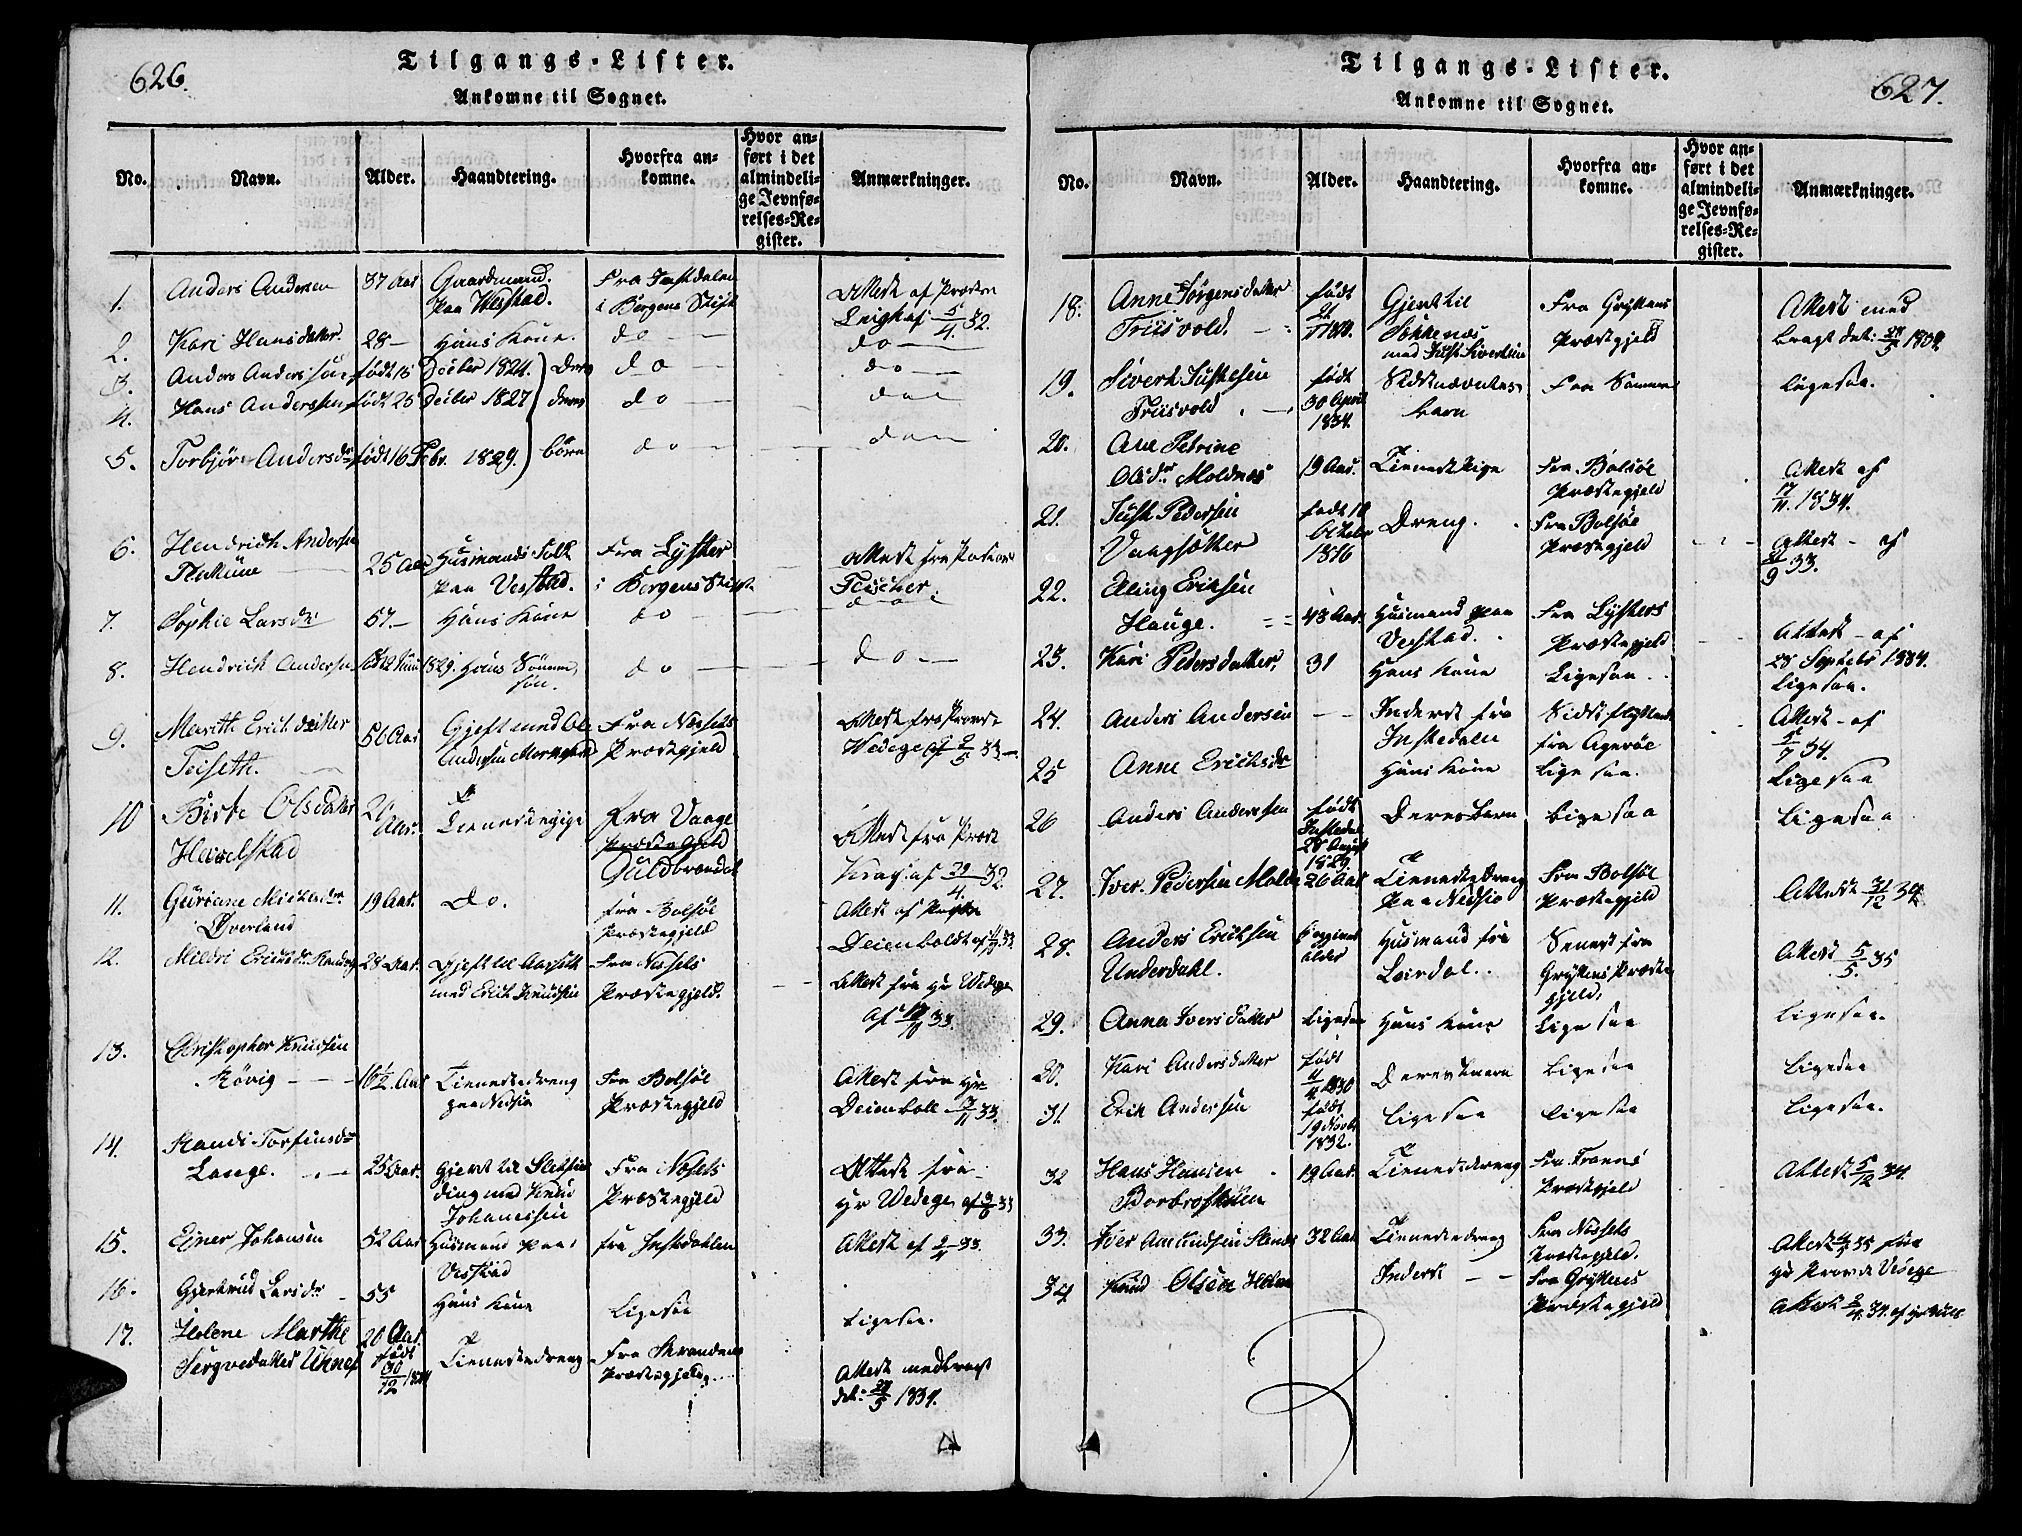 626.
Tilgangs-Lister.
Ankomne til Sognet.
No. Navn. Alder. Haandtering. Hvorfra ankomne. Hvor anført i det almindelige Jevnførelses-Register. Anmærkninger.
1. Anders Andersen 37 Aar Gaardmand
paa Westad. Fra Justdalen
i Bergens Stift Attest af Præsten
5/4 32.
2. Kari Hansdatter. 28 – Hans Kone. do – do –
3. Anders Anderssøn født 15 Decbr 1824. do – do –
4. Hans Anderssen født 25 Decbr 1827 deres do – do –
5. Torbjør Andersdr født 16 Febr. 1829. børn do – do –
6. Hendrich Andersen
25 Aar Husmands Folk
paa Vestad. Fra Lyster
i Bergens Stift Attest fra Pastor
Fischer.
7. Sophie Larsdr 57 – Hans Kone do – do –
8. Hendrich Andersen 1829. Hans Sønne
søn. do – do –
9. Marith Erichdatter
Teiseth. 56 Aar Gjeft med Ole
Andersen Fra Nessets
Præstegjeld Attest fra Provst
Wedege af 2/5 33 –
10 Birte Olsdatter
26 Aar. Tienestepige Fra Vaage
Præstegjeld
Guldbrandsd. Attest fra Præst
Krag af 29/4 32.
11. Guriane
Øverland 19 Aar. Do. fra Bolsöe
Præstegjeld Attest af
Deienboldt
12. Mildri Ericksdr 28 Aar. Gjeft til
med Erich Knudsen Fra Nessets
Præstegjeld. Attest fra Hr Wedege
33.
13. Christopher Knudsen
Rövig – – 16½ Aar Tienestedreng
paa Nedsiø Fra Bolsöe
Præstegjeld Attest fra Hr
Deienbolt 33.
14. Randi Torfinsdr
Lange. 25 Aar. Gjevt til
med Knud
Johanessen Fra Nessets
Præstegjeld Attest fra
Hr Wedege 33
15. Ejner Johansen 52 Aar Husmand paa
Vestad fra Justedahlen Attest af 33.
16. Gjertrud Larsdr – 55 Hans Kone Ligesaa Ligesaa.
17. Helene Marthe
20 Aar.
født
30/12 Tienestedreng Fra Strandens
Præstegjeld Attest medbragt
det. 1834.
627.
Tilgangs-Lister.
Ankomne til Sognet.
No. Navn. Alder. Haandtering. Hvorfra ankomne. Hvor anført i det almindelige Jevnførelses-Register. Anmærkninger.
18. Anne Jørgensdatter
Triisvold. født Gjevt til
med Just Sivertsen Fra Gryttens
Præstegjeld Attest med
bragt
19. Sivert Justesen
Triisvold født
30 April
1834. Sidstnævntes
barn Fra Samme ligesaa.
20. Ane Petrine
Olsdr Moldnæs 19 Aar. Tienestepige Fra Bolsöe
Præstegjeld Attest af
17/11. 1834.
21. Just Pedersen
født 10
October
1816 Dreng. Fra Bolsöe
Præstegjeld Attest – af
33.
22. Eling Ericksen
Hauge. 43 Aar. Husmand paa
Vestad. Fra Lysters
Præstegjeld Attest – af
28 Septebr 1834.
23. Kari Pedersdatter, 31 Hans Kone Ligesaa Ligesaa.
24. Anders Andersen – – Inderst fra
Justedalen Sidst
fra Agerøe Attest – af
34.
25 Anne Ericksdr Hans Kone Ligesaa. Ligesaa
26 Anders Anderssen født
Justedal
28 August
1829 Deres barn Ligesaa Ligesaa
27. Iver Pedersen Molde 26 Aar Tienestedreng
paa Nedsiø Fra Bolsöe
Præstegjeld Attest 31/12 34
28. Anders Ericksen
Underdahl. alder Husmand fra
Leirdal. Senest fra
Gryttens Præste
gjeld. Attest 5/5. 35
29. Anna Iversdatter Ligesaa Hans Kone Ligesaa Ligesaa.
30. Kari Andersdatter født
1830 Deres barn Ligesaa Ligesaa
31. Erik Andersen født
19 Novbr
1832. Ligesaa Ligesaa Ligesaa.
32 Hans Hansen
19 Aar. Tienestedreng Præstegjeld Attest 5/12 34.
33. Iver Amundsen 32 Aar Tienestedreng Fra Nessets
Præstegjeld. Attest 35 fra
Hr Provst Wedege
34 Knud Olsen Holm Inderst – – Fra Gryttens
Præstegjeld Attest 34.